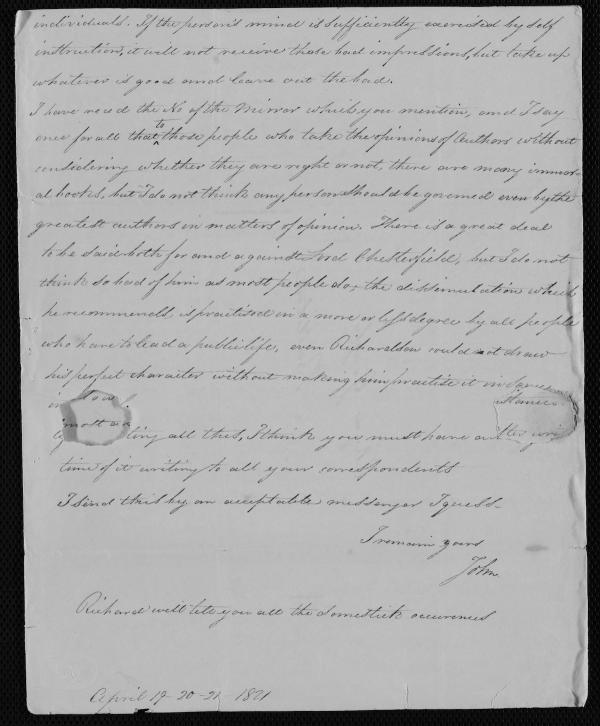 individuals. If the person's mind is sufficiently exercised by self
instruction, it will not receive those bad impressions, but take up
whatever is good and leave out the bad.
I have read the No of the Mirror which you mention, and I say
once for all that to those people who take the opinions of Authors without
considering whether they are right or not, there are many immor-
al books, but I do not think any person should be governed even by the
greatest authors in matters of opinion. There is a great deal
to be said both for and against Lord Chesterfield, but I do not
think so bad of him as most people do, the dissimulation which
he recommends, is practised in a more or less degree by all people
who have to lead a public life, even Richardson could not draw
his perfect character without making him practise it in some
in
all this, I think you must have
time of it writing to all your correspondents
I send this by an acceptable messenger I guess.
I remain yours
John
Richard will tell you all the domestick occurences
April 19-20-21-1821